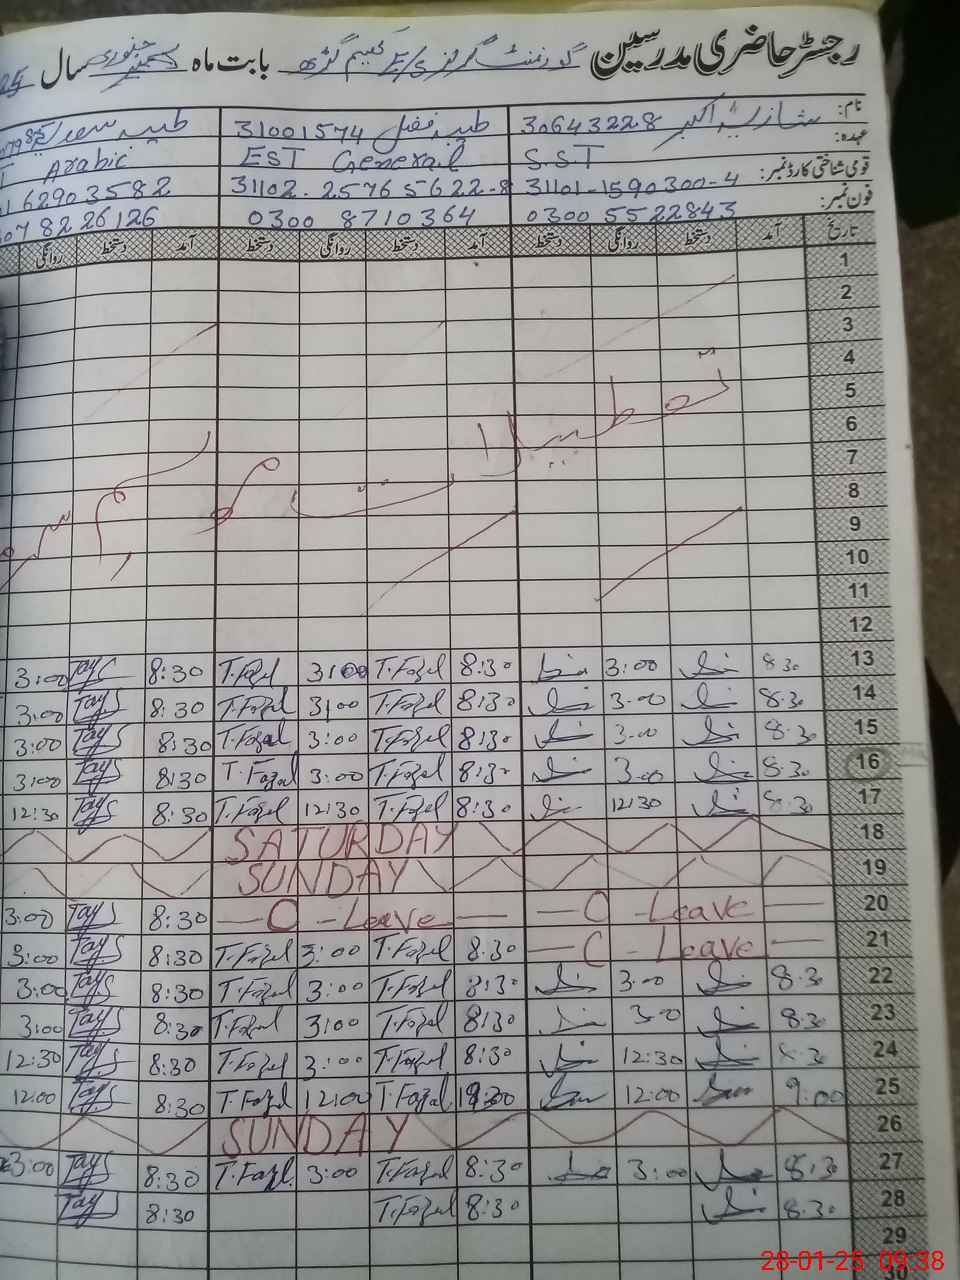 رجسٹر حاضری مدرسین گورنمنٹ گرلز بابت ماہ جنوری سال
نام: شازیہ اکبر 30643228 طیبہ فضل 31001574 طیبہ
عہدہ: S.ST EST General Arabic
قومی شناختی کارڈ نمبر: 31101-1590300-4 31102-25765622-8 62903582
فون نمبر: 0300 5522843 0300 8710364 07 8226126
تاریخ آمد دستخط روانگی دستخط آمد دستخط روانگی دستخط آمد دستخط روانگی
1
2
3
4
5
6
7
8
9
10
11
12
تعطیلات موسم سرما
13 8:30 3:00 8:30 T.Fazal 3:00 T.Fazal 8:30 TayS 3:00
14 8:30 3:00 8:30 T.Fazal 3:00 T.Fazal 8:30 TayS 3:00
15 8:30 3:00 8:30 T.Fazal 3:00 T.Fazal 8:30 TayS 3:00
16 8:30 3:00 8:30 T.Fazal 3:00 T.Fazal 8:30 TayS 3:00
17 8:30 12:30 8:30 T.Fazal 12:30 T.Fazal 8:30 TayS 12:30
18 SATURDAY
19 SUNDAY
20 — C - Leave — — C - Leave — 8:30 TayS 3:00
21 — C - Leave — 8:30 T.Fazal 3:00 T.Fazal 8:30 TayS 3:00
22 8:30 3:00 8:30 T.Fazal 3:00 T.Fazal 8:30 TayS 3:00
23 8:30 3:00 8:30 T.Fazal 3:00 T.Fazal 8:30 TayS 3:00
24 8:30 12:30 8:30 T.Fazal 3:00 T.Fazal 8:30 TayS 12:30
25 9:00 12:00 T.Fazal 12:00 T.Fazal 8:30 TayS 12:00
26 SUNDAY
27 8:30 3:00 8:30 T.Fazal 3:00 T.Fazal 8:30 TayS 3:00
28 8:30 8:30 T.Fazal 8:30 TayS
29
30
28-01-25 09:38